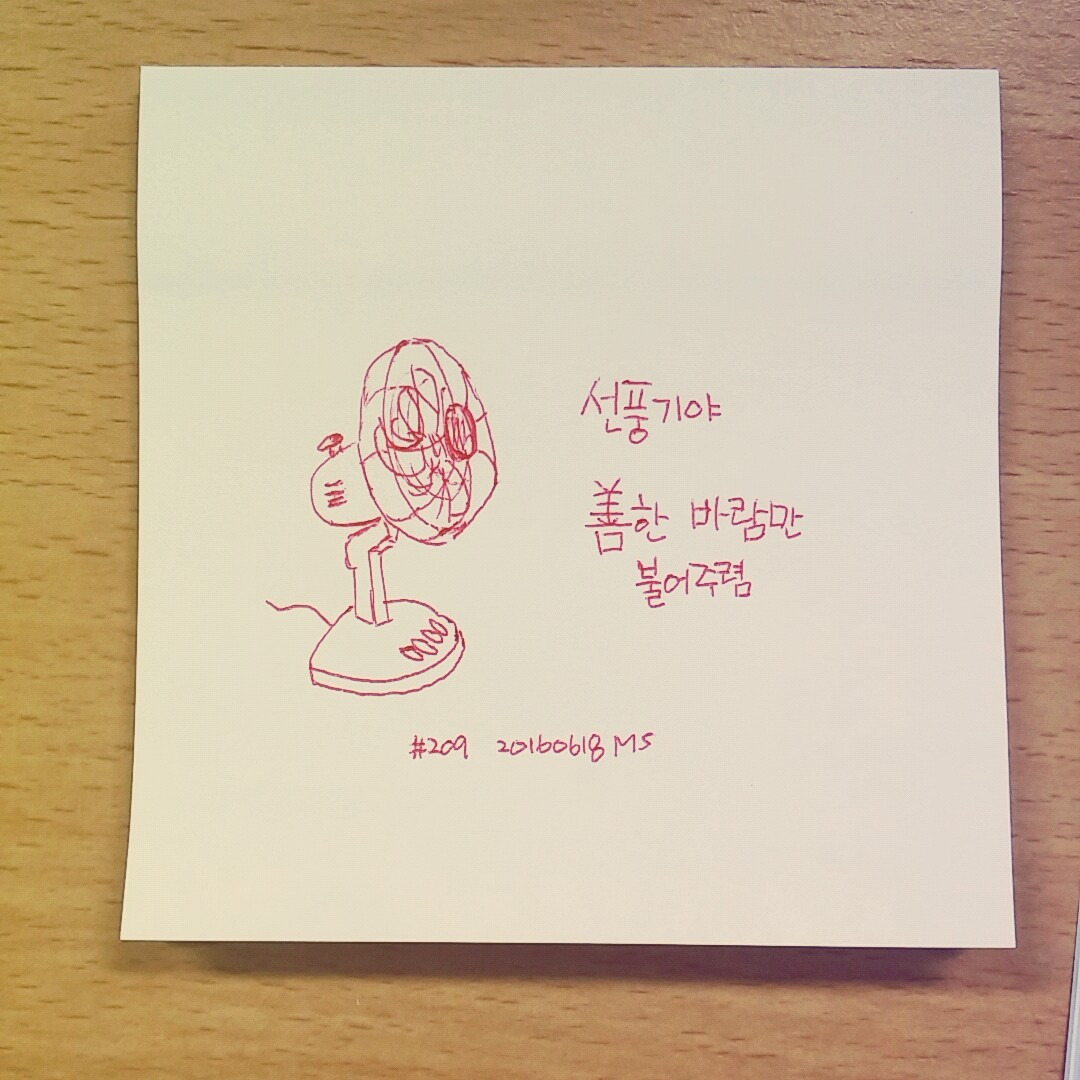 선풍기야
善한 바람만
불어주렴
#209 20160618 MS